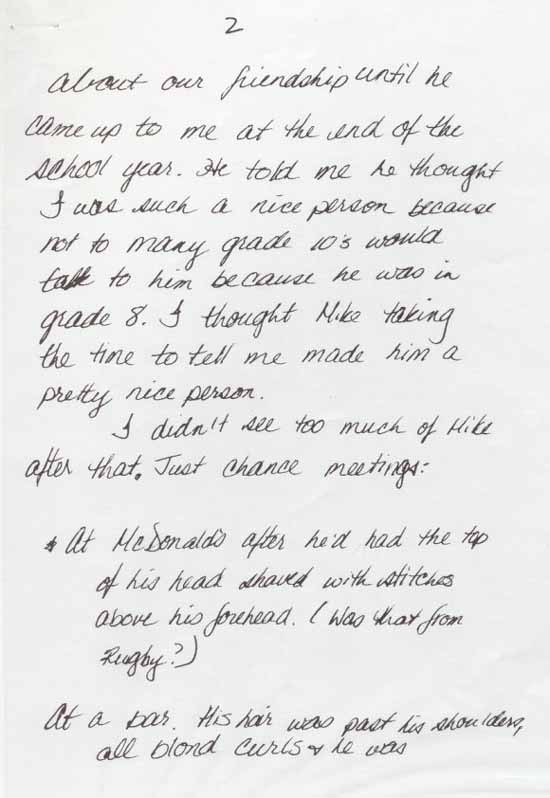 2
About our friendship until he
came up to me at the end of the
school year. He told me he thought
I was such a nice person because
not to many grade 10's would
talk to him because he was in
grade 8. I thought Mike taking
the time to tell me made him a
pretty nice person.
I didn't see too much of Mike
after that. Just chance meetings:
* At McDonald's after he'd had the top
of his head shaved with stitches
above his forehead. (Was that from
Rugby?)
At a bar. His hair was past his shoulders,
all blond curls & he was